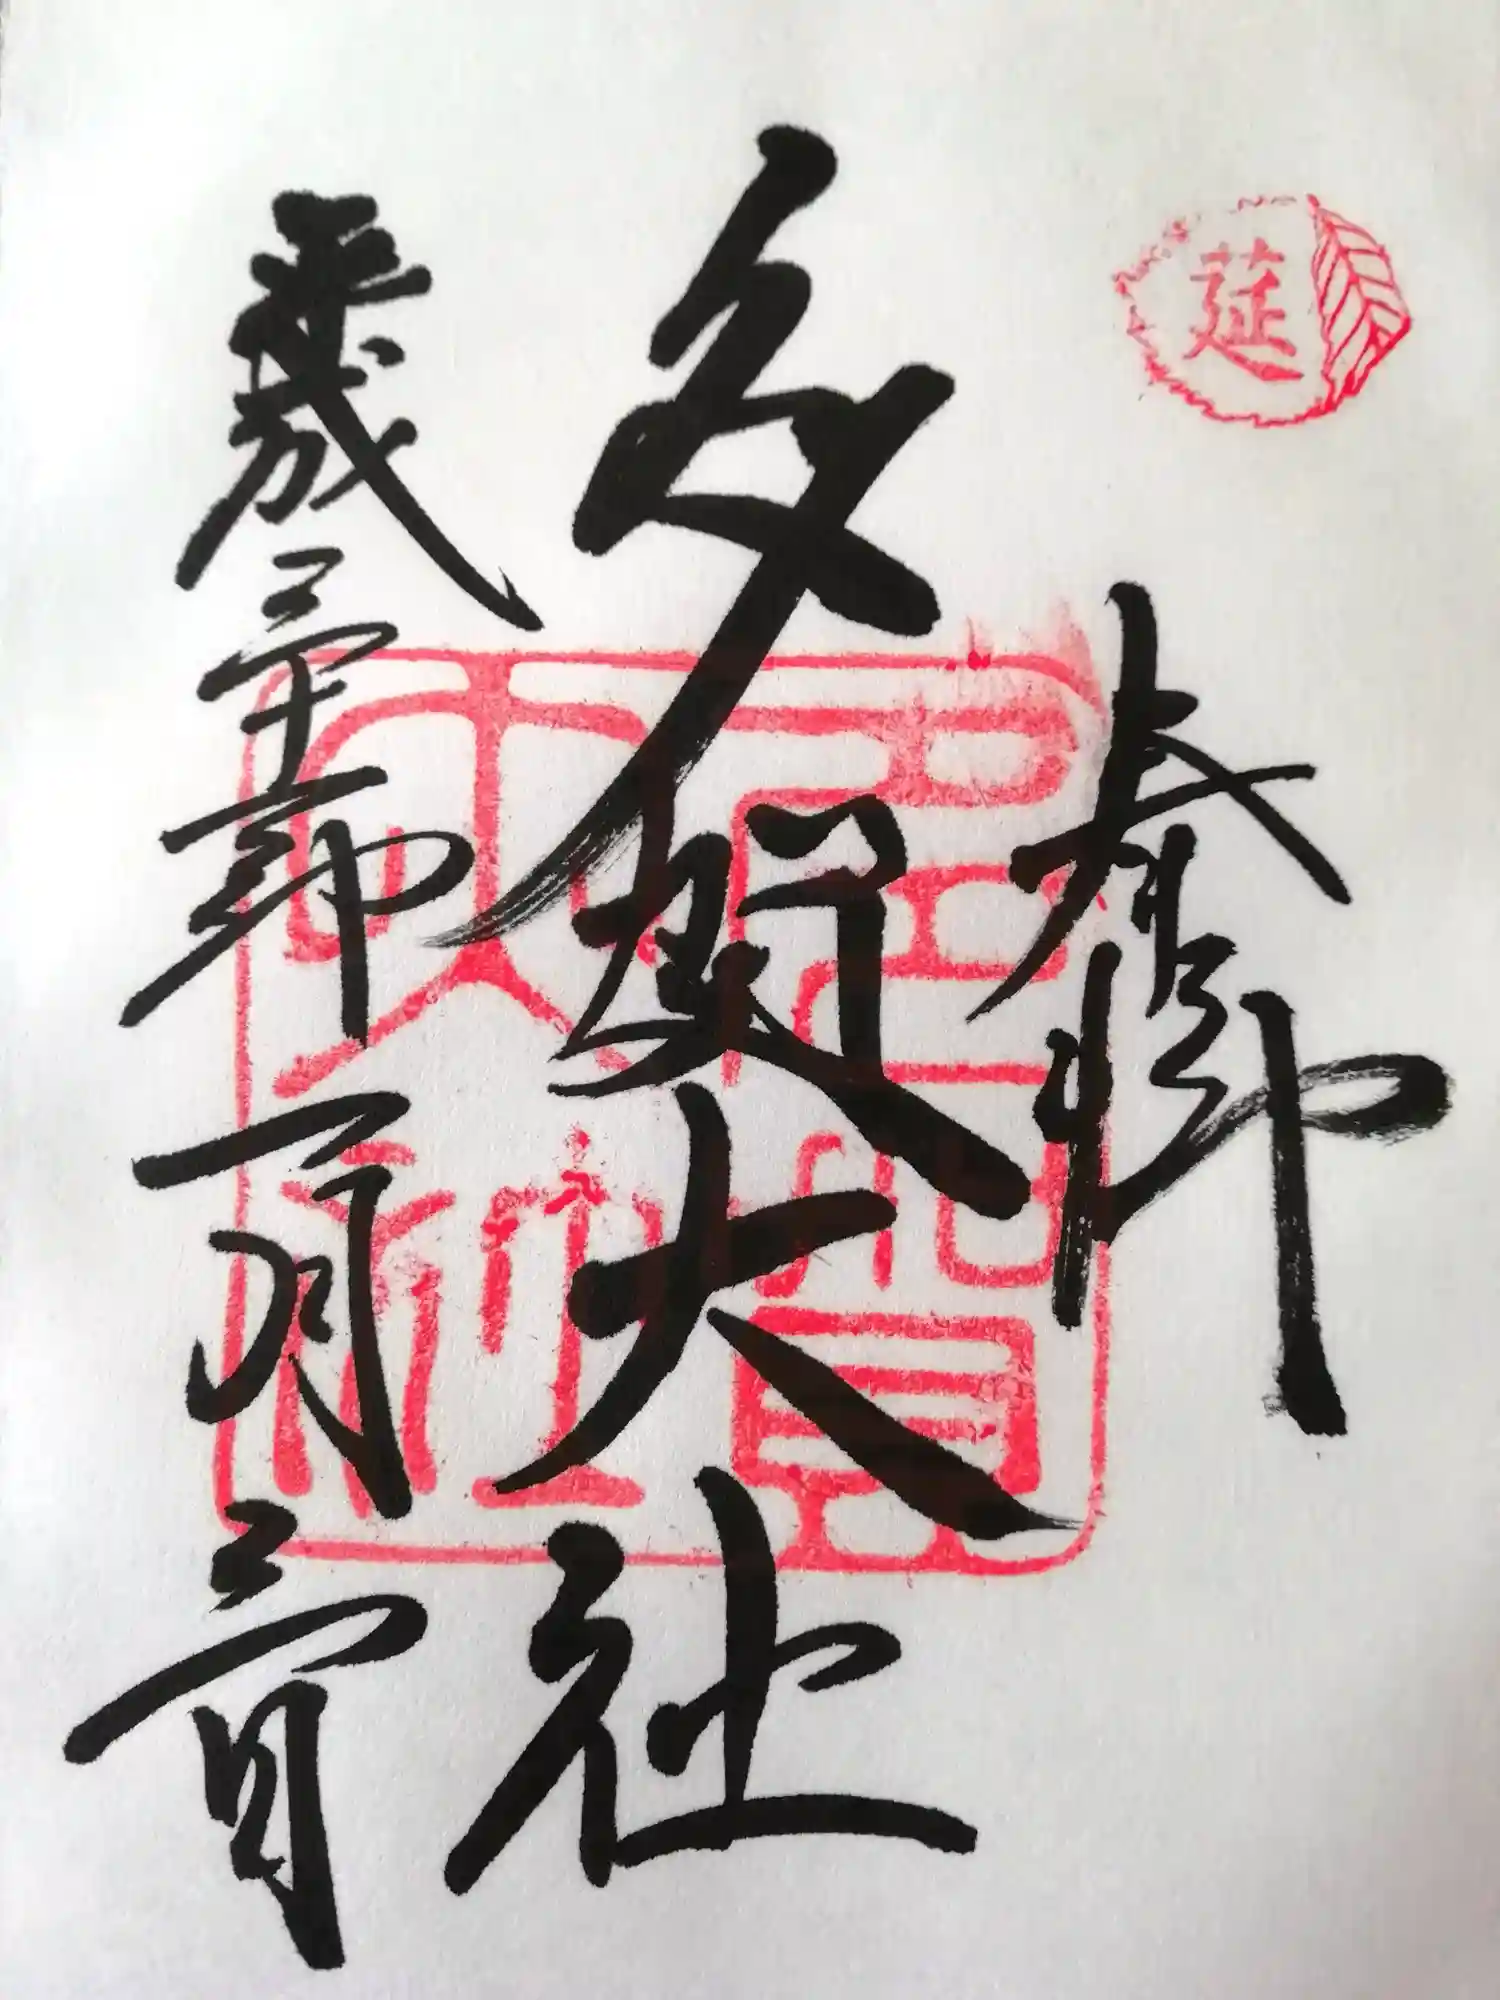 莚
多賀大社
平成三十一年一月三日
多賀大社